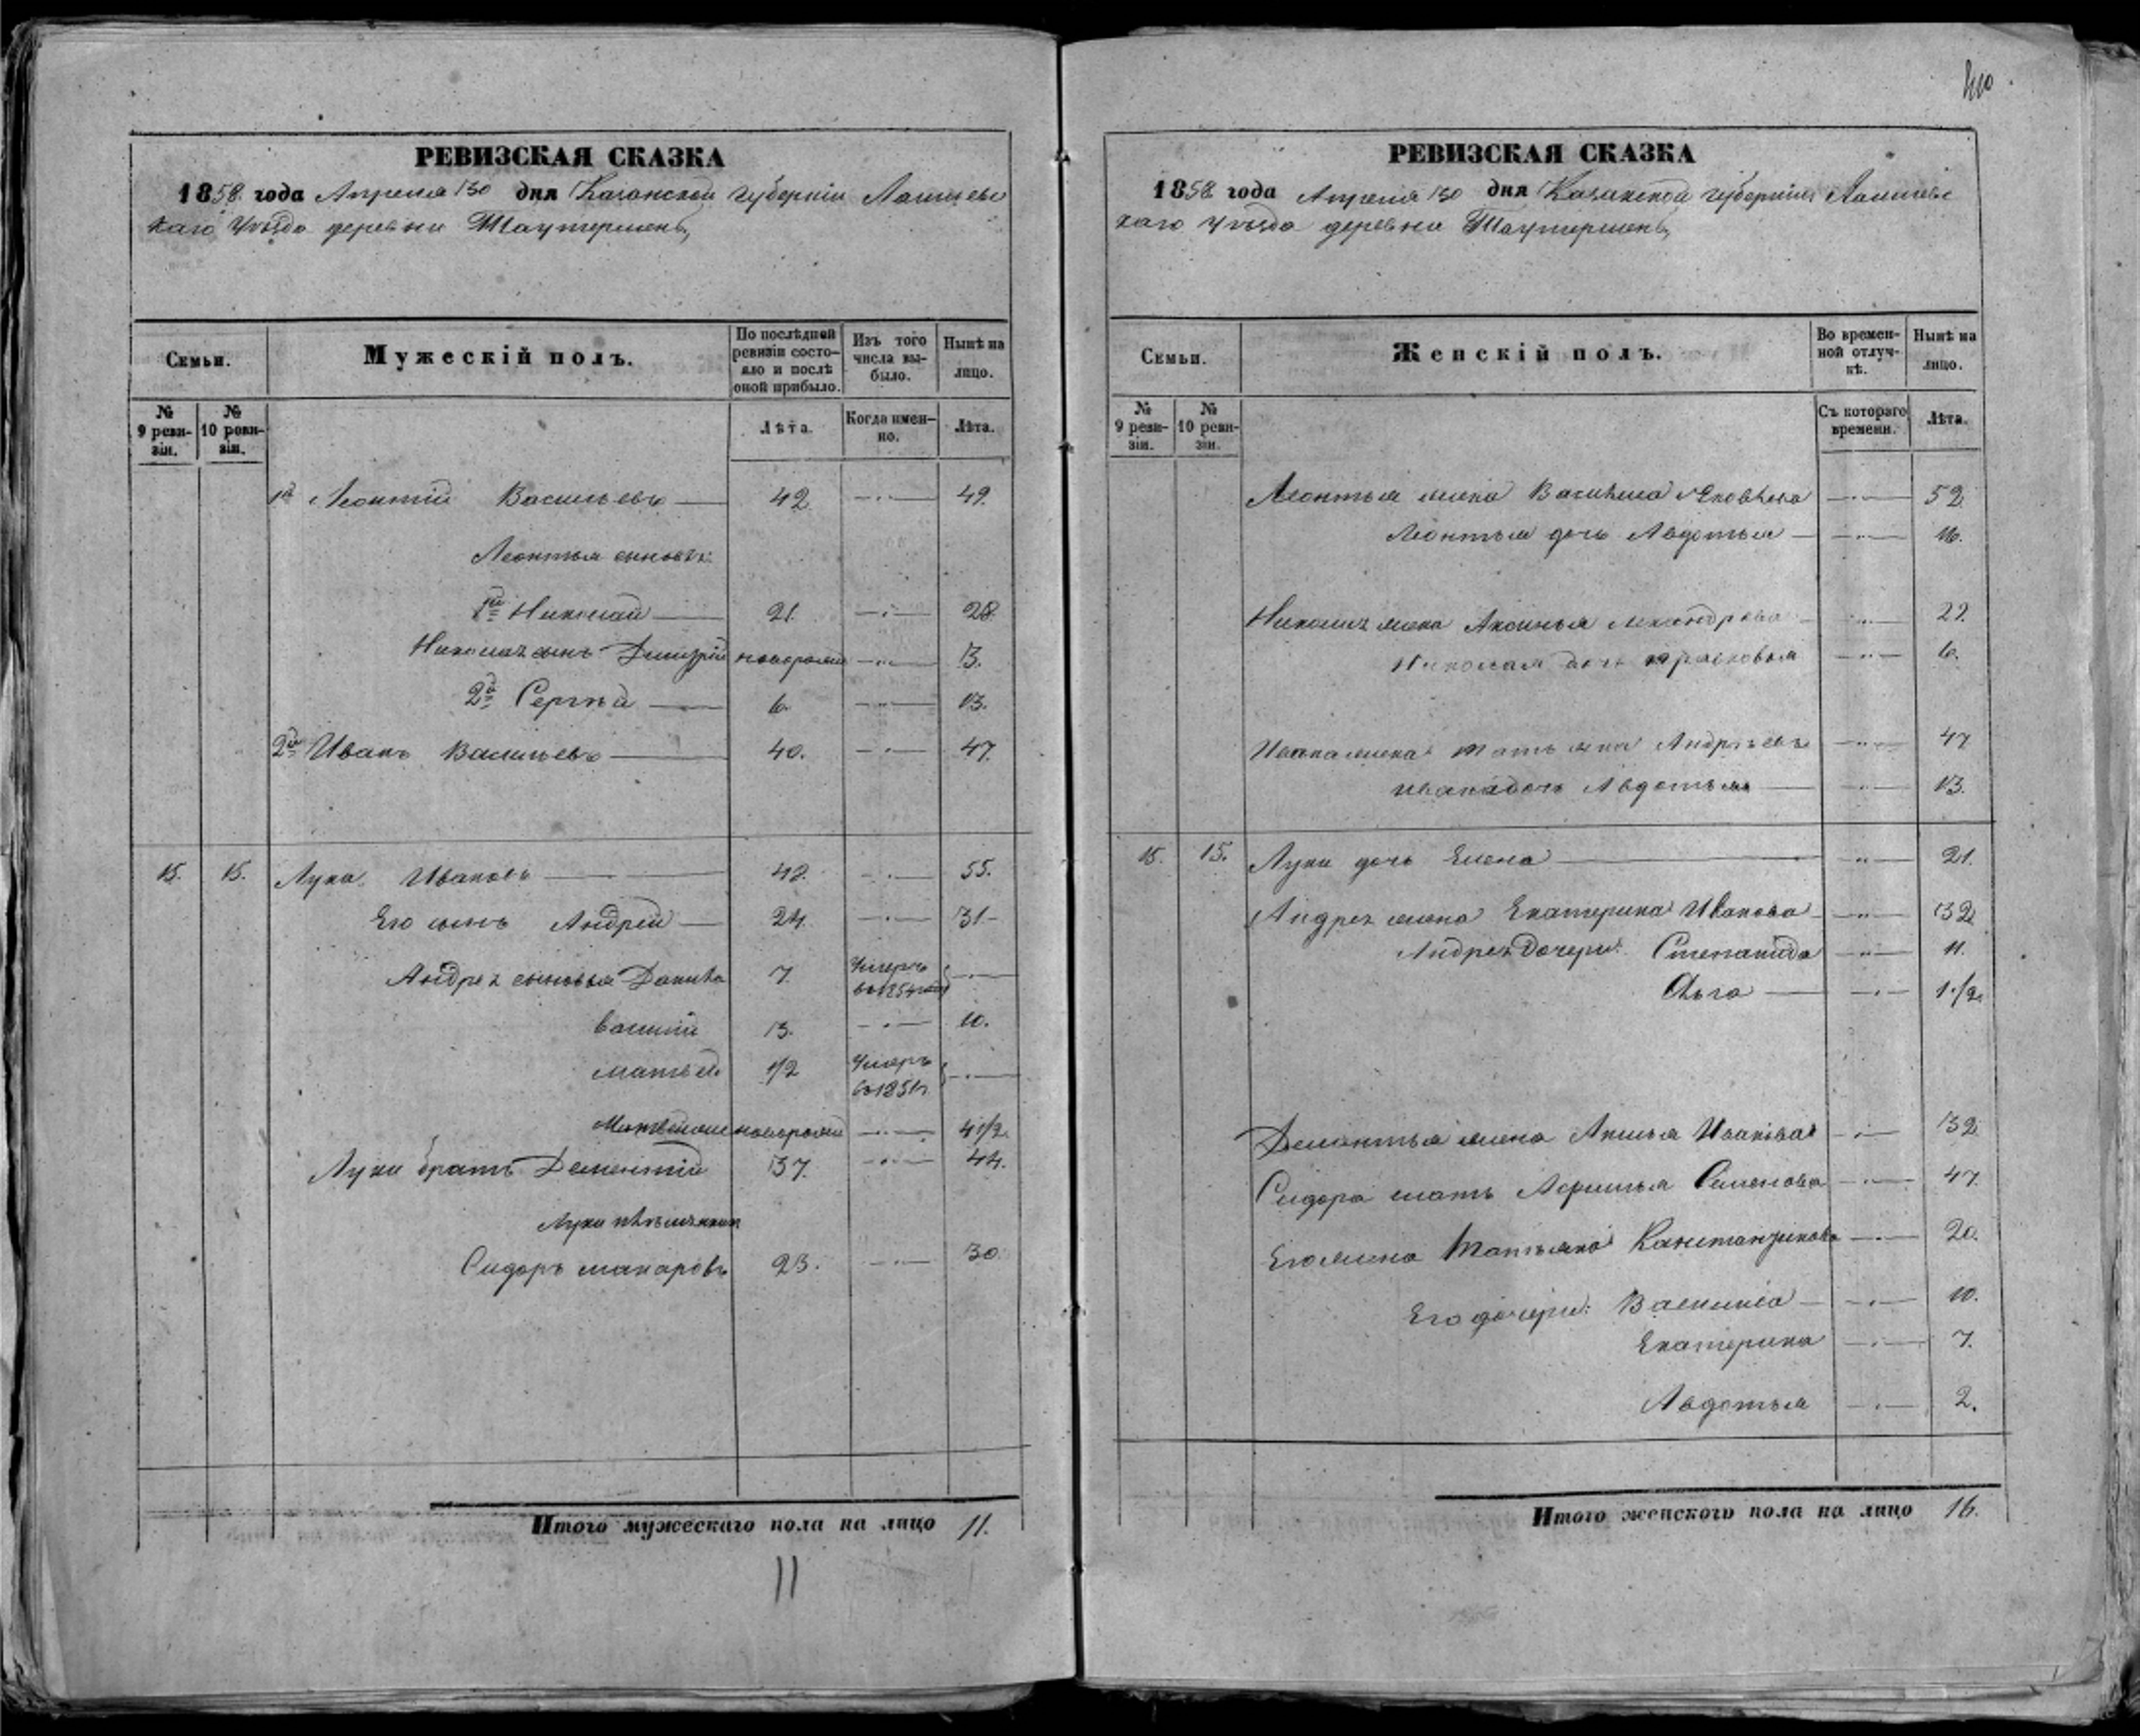 РЕВИЗСКАЯ СКАЗКА
1858 года Апреля 30 дня Казанской губерніи Лаишевс
каго Уѣзда деревни
Семьи.
Мужескій полъ.
По послѣдней ревизіи состояло и послѣ оной прибыло.
Изъ того числа выбыло.
Нынѣ на лицо.
№ 9 ревизіи.
№ 10 ревизіи.
Лѣта.
Когда именно.
Лѣта.
1й Леонтій Васильевъ 42 49.
Леонтья сыновья:
1й Николай 21. 28
Николая сынъ Дмитрій новорожд 3.
2й Сергѣй 6. 13.
2й Иванъ Васильевъ 40. 47.
15. 15. Лука Ивановъ 48. 55.
Его сынъ Андрей 24. 31
Андрея сыновья Данила 7. Умеръ въ 1854 году
Василій 3. 10.
Матвей 1/2 Умеръ въ 1851
новорожд 4 1/2
Луки братъ Дементій 37. 44.
Луки племянникъ
Сидоръ Макаровъ 23. 30
Итого мужескаго пола на лицо 11.
11
РЕВИЗСКАЯ СКАЗКА
1858 года Апреля 30 дня Казанской губерніи Лаишевс
каго Уѣзда деревни
Семьи.
Женскій полъ.
Во временной отлучкѣ.
Нынѣ на лицо.
№ 9 ревизіи.
№ 10 ревизіи.
Съ котораго времени.
Лѣта.
Леонтья жена Яковлева 52
Леонтья дочь Авдотья 16.
Николая жена Аксинья 27.
Николая дочь Прасковья 6.
Ивана жена Татьяна Андреева 47
Ивана дочь Авдотья 13.
15. 15. Луки дочь Елена 21.
Андрея жена Екатерина Иванова 32
Андрея дочери: Степанида 11.
Ольга 1 1/2
Дементья жена Иванова 32
Сидора мать Семенова 47
Его жена Татьяна Канстантинова 20.
Его дочери: Василиса 10.
Екатерина 7.
Авдотья 2.
Итого женскаго пола на лицо 16.